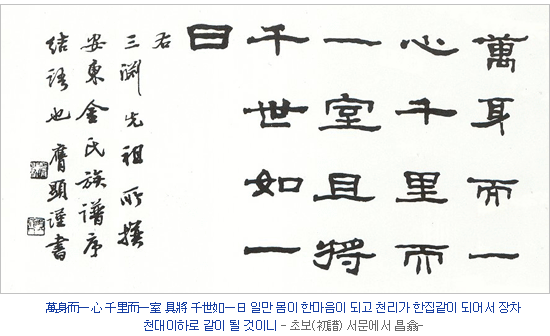 萬身而一
心千里而
一室且將
千世如一
日
右
三淵先祖所撰
安東金氏族譜序
結語也 膺顯謹書
萬身而一心 千里而一室 具將 千世如一日 일만 몸이 한마음이 되고 천리가 한집같이 되어서 장차
천대이하로 같이 될 것이니 - 초보(初譜) 서문에서 昌翕-